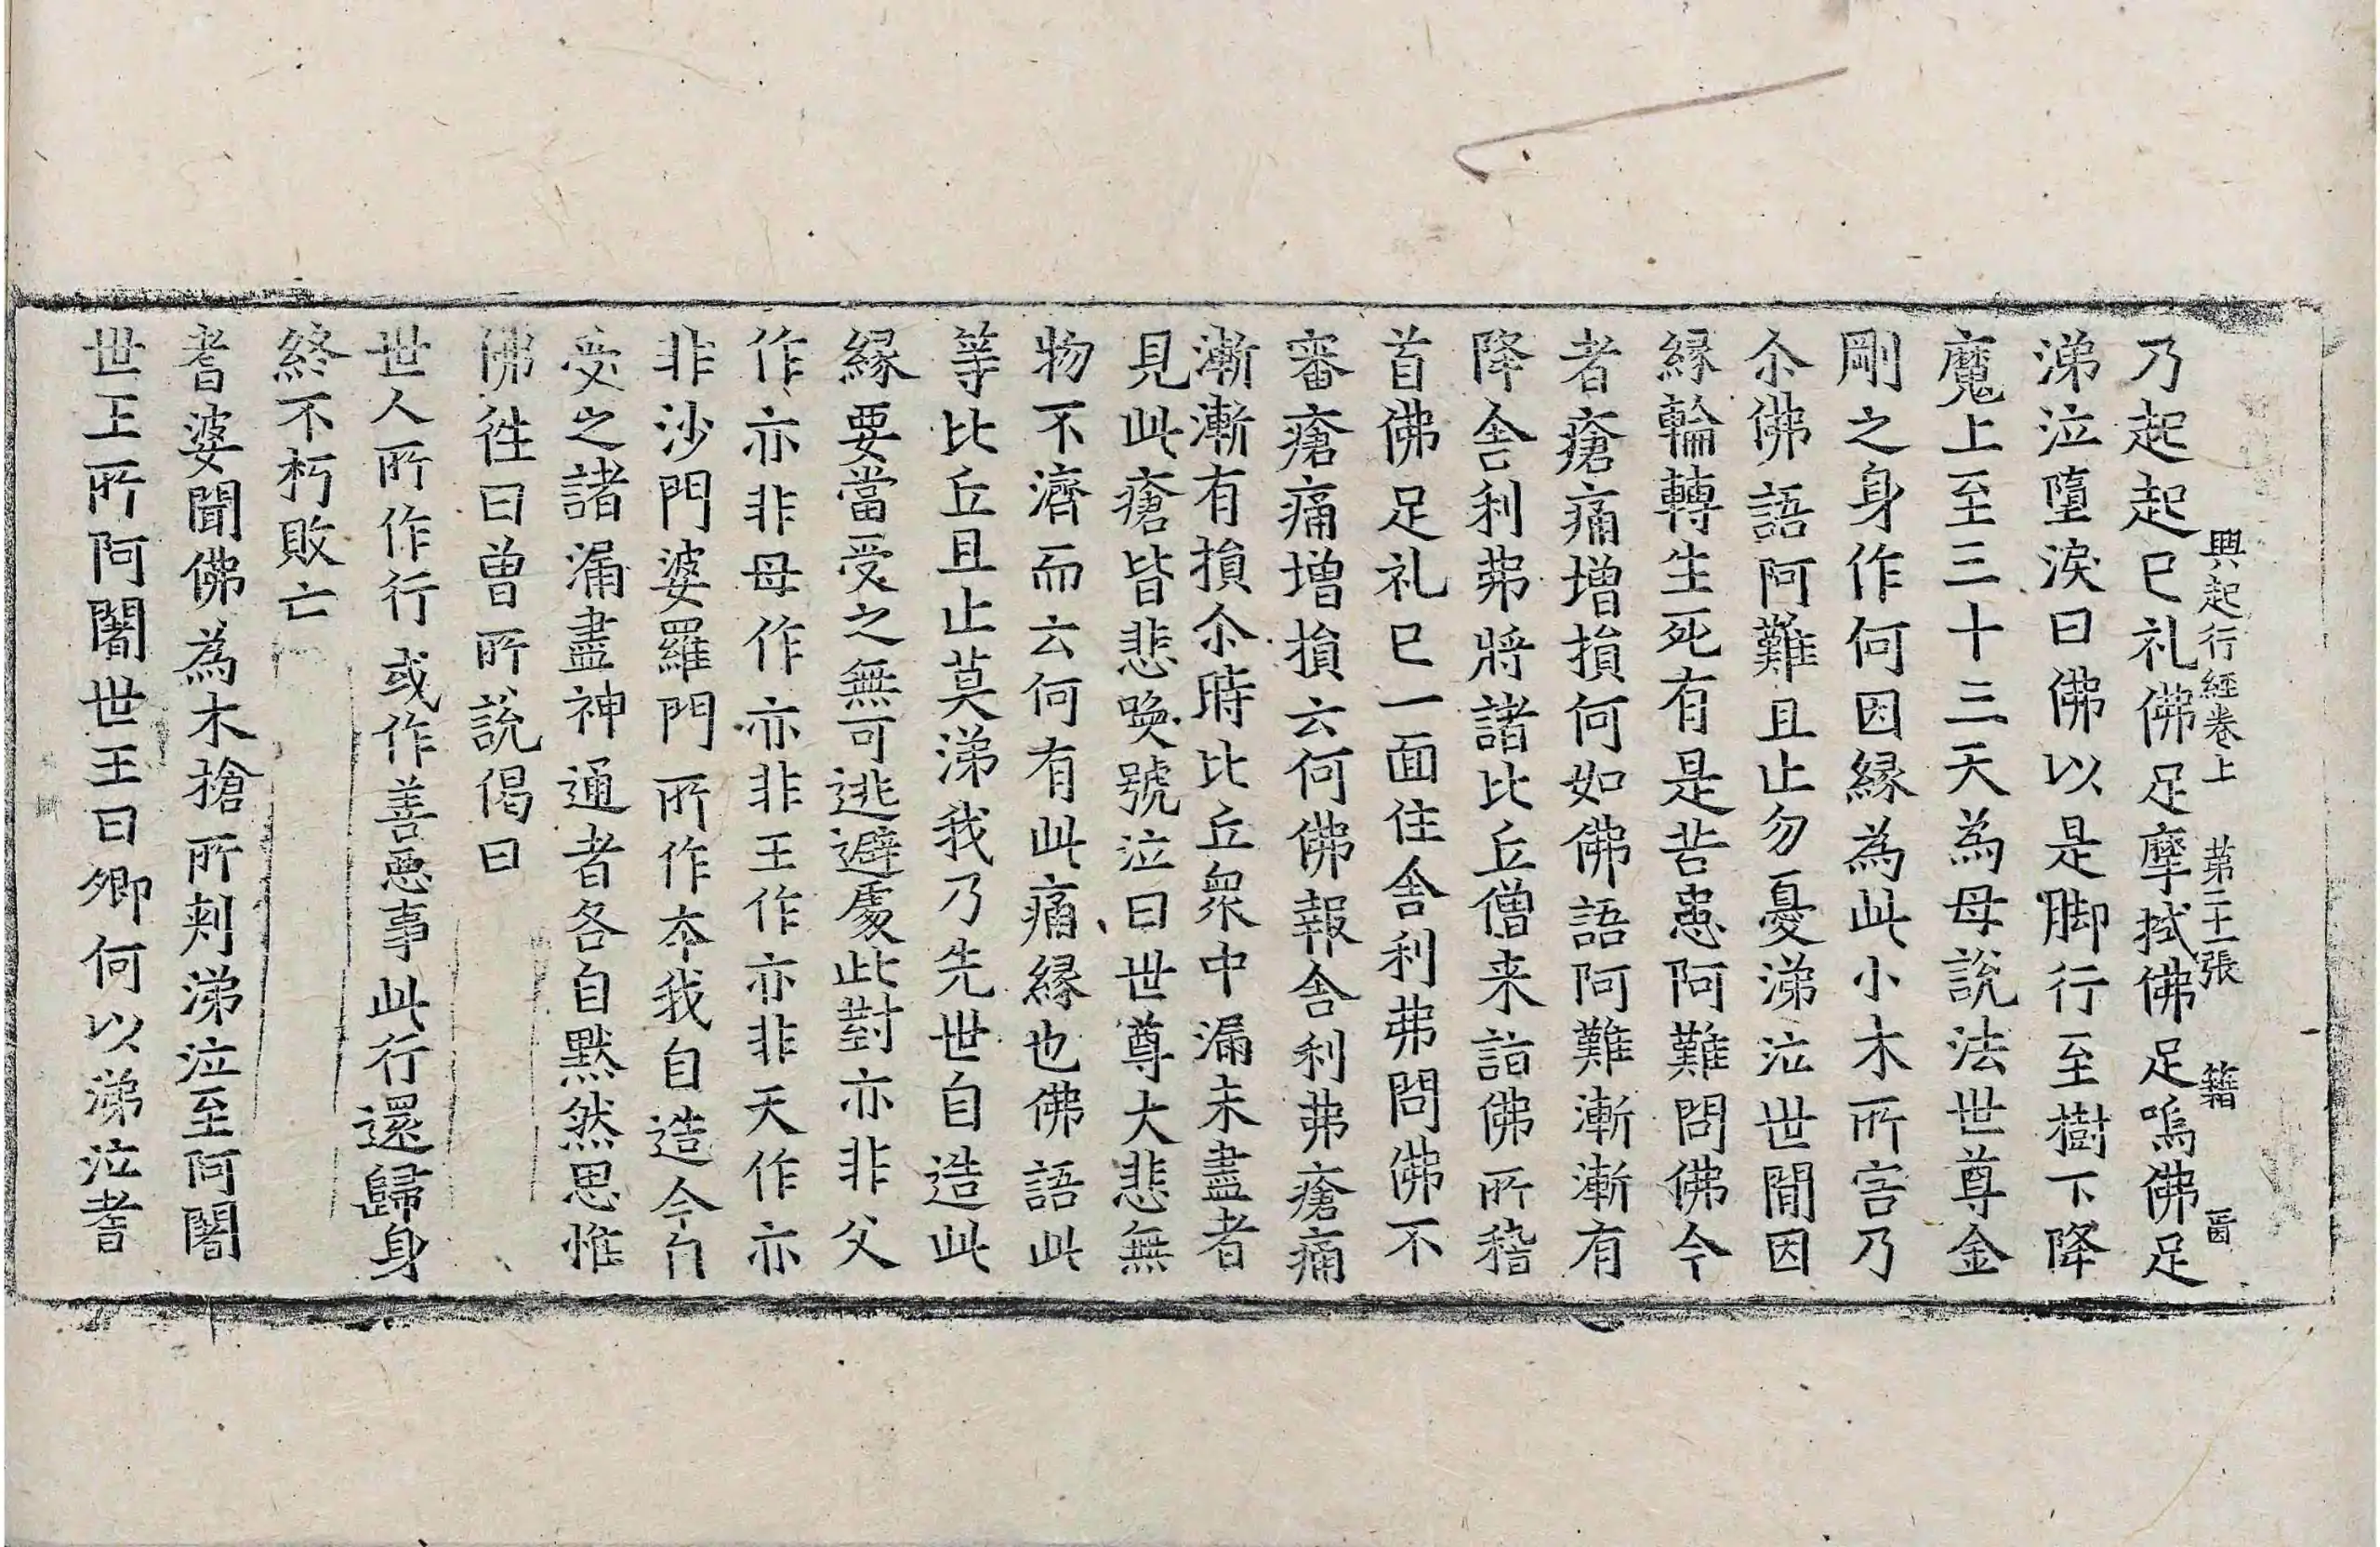 興起行經卷上 第二十一張 籍 𦥑
乃起起已礼佛足摩拭佛足嗚佛足
涕泣墮淚曰佛以是脚行至樹下降
魔上至三十三天為母說法世尊金
剛之身作何因緣為此小木所害乃
尒佛語阿難且止勿憂涕泣世間因
緣輪轉生死有是苦患阿難問佛今
者瘡痛增損何如佛語阿難漸漸有
降舍利弗將諸比丘僧来詣佛所稽
首佛足礼已一面住舍利弗問佛不
審瘡痛增損云何佛報舍利弗瘡痛
漸漸有損尒時比丘衆中漏未盡者
見此瘡皆悲喚號泣曰世尊大悲無
物不濟而云何有此痛緣也佛語此
等比丘且止莫涕我乃先世自造此
緣要當受之無可逃避處此對亦非父
作亦非母作亦非王作亦非天作亦
非沙門婆羅門所作本我自造今自
受之諸漏盡神通者各自默然思惟
佛往日曾所說偈曰
世人所作行或作善惡事此行還歸身
終不朽敗亡
耆婆聞佛為木搶所刺涕泣至阿闍
世王所阿闍世王曰卿何以涕泣耆